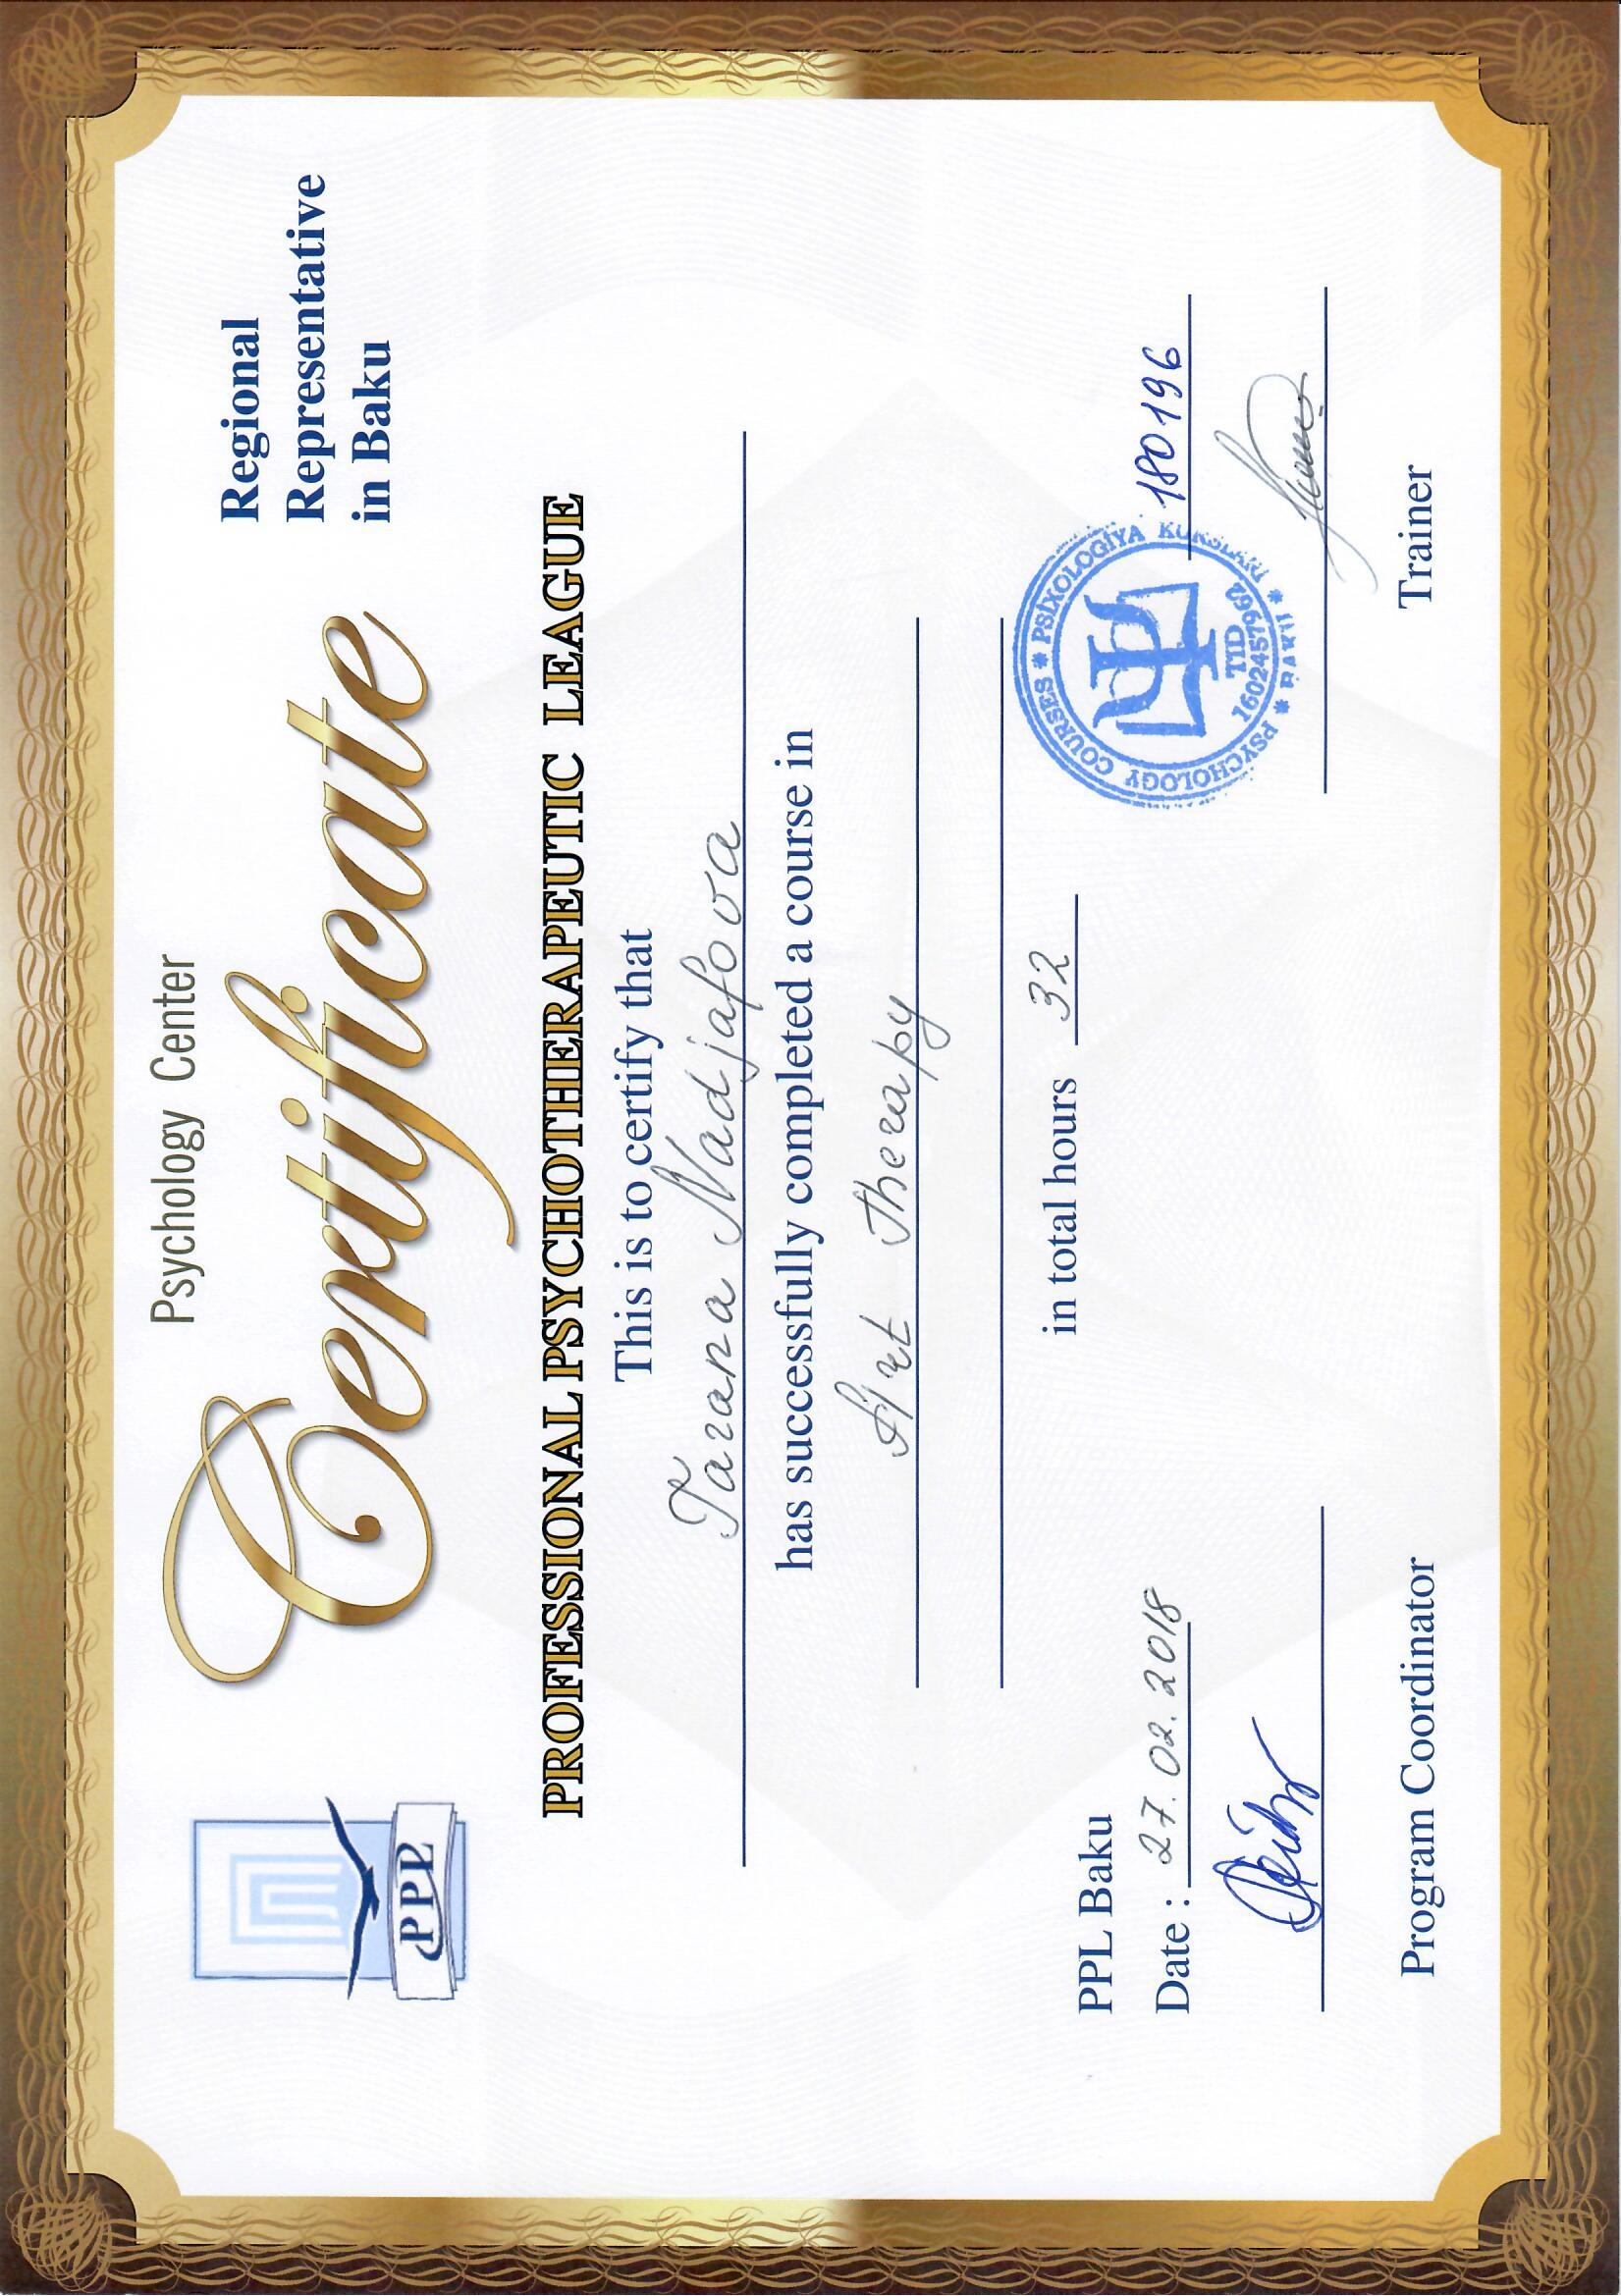 Psychology Center
Certificate
Regional
Representative
in Baku
PPL
PROFESSIONAL PSYCHOTHERAPEUTIC LEAGUE
This is to certify that
Tarana Nadjafova
has successfully completed a course in
Art Therapy
in total hours 32
PPL Baku
Date : 27.02.2018
PSYCHOLOGY COURSES * PSIXOLOGIYA KURSLARI * BAKU *
TID
1602457962
180196
Program Coordinator
Trainer